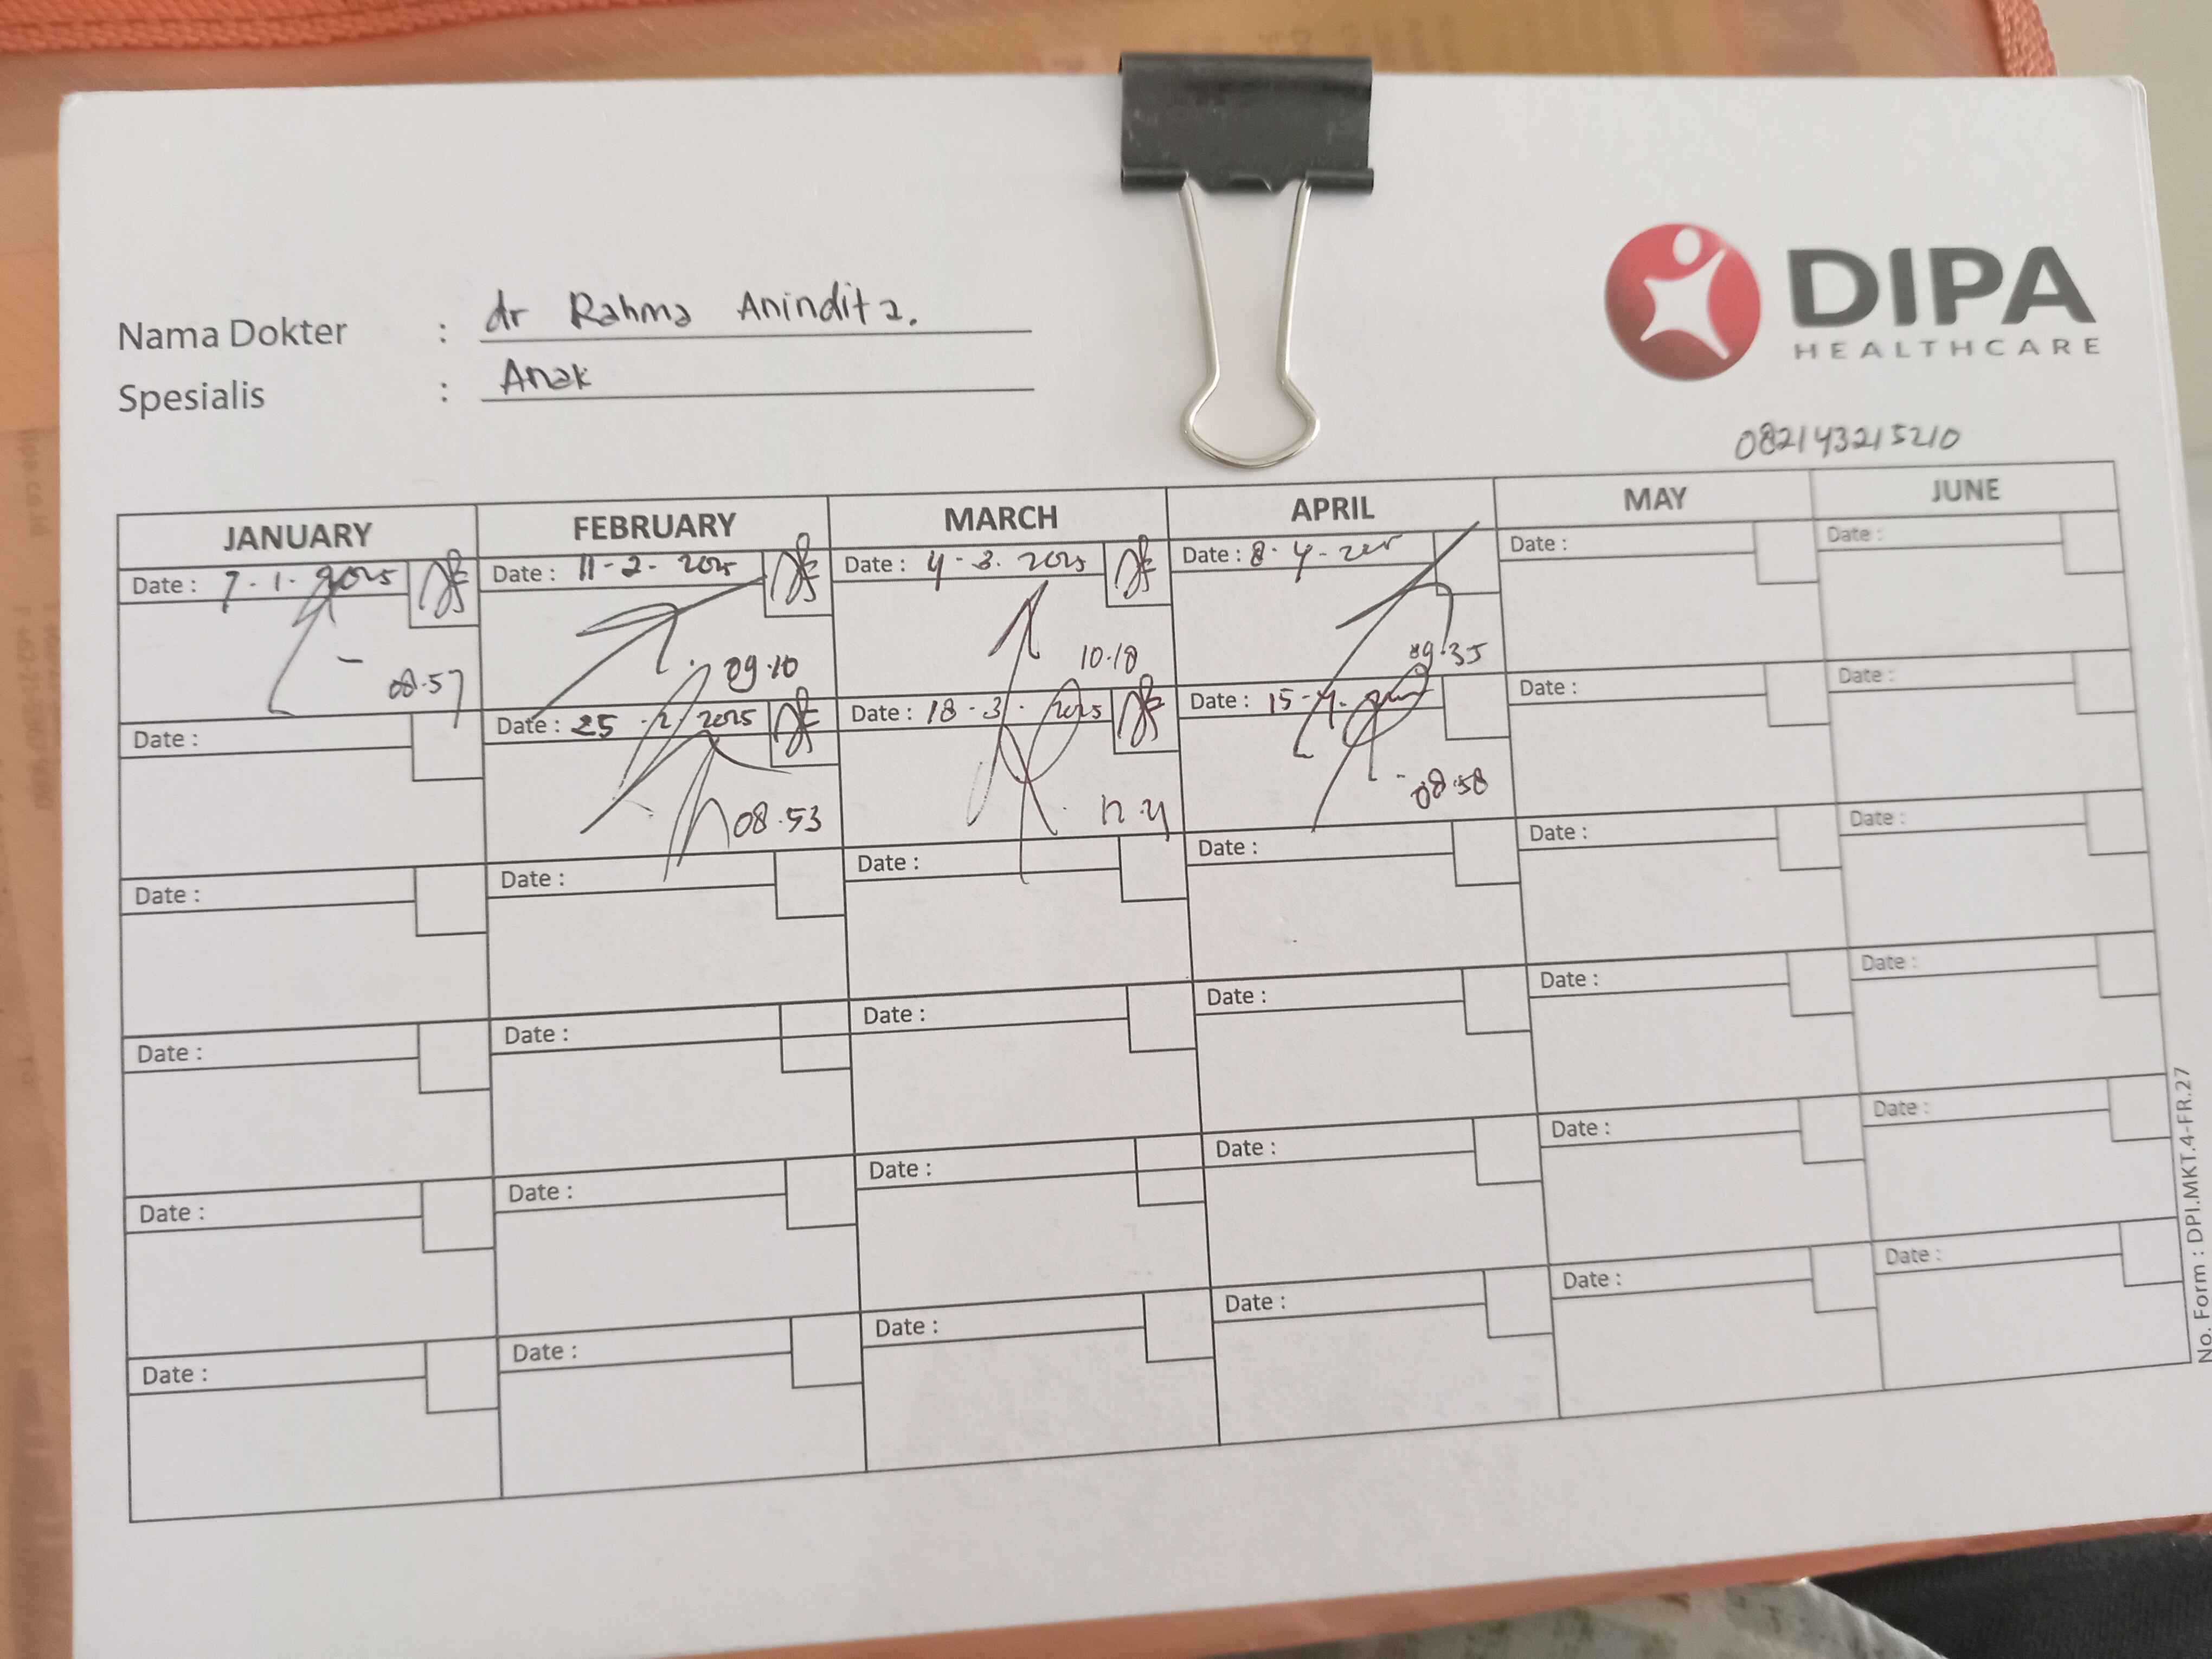 DIPA
HEALTHCARE
Nama Dokter : dr Rahma Anindita.
Spesialis : Anak
082143215210
JANUARY FEBRUARY MARCH APRIL MAY JUNE
Date : 7-1-2025 Date : 11-2-2025 Date : 4-3-2025 Date : 8-4- Date : Date :
08.57 09.10 10.10 09.35
Date : Date : 25-2-2025 Date : 18-3-2025 Date : 15-4- Date : Date :
08.53 08.58
Date : Date : Date : Date : Date : Date :
Date : Date : Date : Date : Date : Date :
Date : Date : Date : Date : Date : Date :
Date : Date : Date : Date : Date : Date :
No. Form : DPI.MKT.4-FR.27